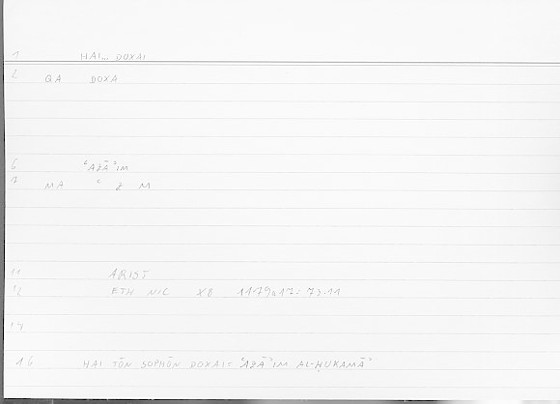 1 HAI... DOXAI
2 QA DOXA
6 ʿAZĀʾIM
7 MA ʿ Z M
11 ARIST
12 ETH NIC X8 1179a17: 73.11
14
16 HAI TŌN SOPHŌN DOXAI: ʿAZĀʾIM AL-ḤUKAMĀʾ